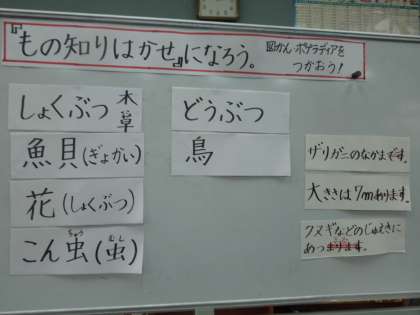 『もの知りはかせ』になろう。
図かん・ポプラディアを
つかおう！
しょくぶつ 木
草
魚貝(ぎょかい)
花(しょくぶつ)
こん虫(虫)
どうぶつ
鳥
ザリガニのなかまです。
大きさは7mあります。
クヌギなどのじゅえきに
あつまります。